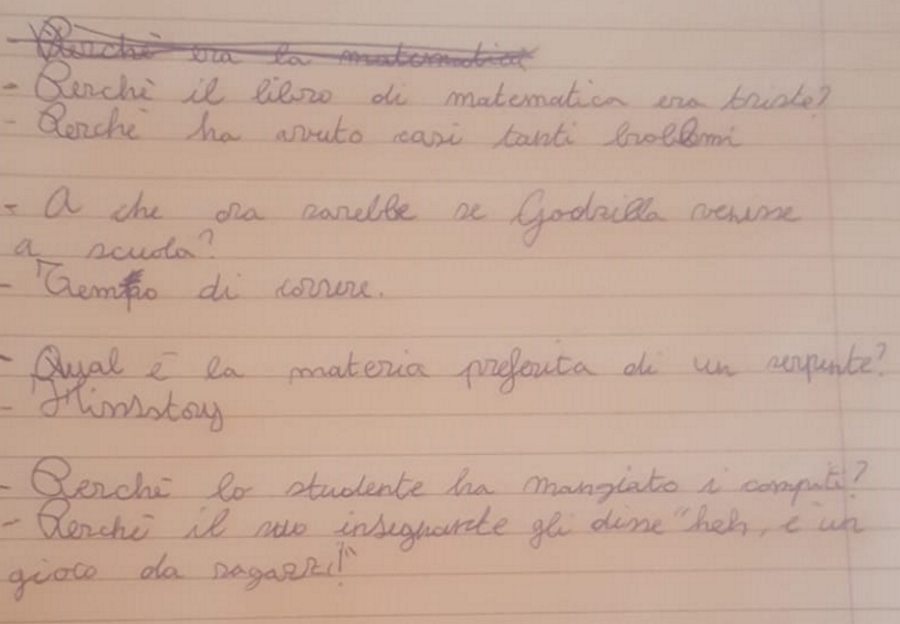 - Perchè era la matematica
- Perchè il libro di matematica era triste?
- Perchè ha avuto casi tanti problemi
- A che ora sarebbe se Godzilla venisse
a scuola?
- Tempo di correre.
- Qual è la materia preferita di un serpente?
- Hissstory
- Perchè lo studente ha mangiato i compiti?
- Perchè il suo insegnante gli disse "heh, è un
gioco da ragazzi!"